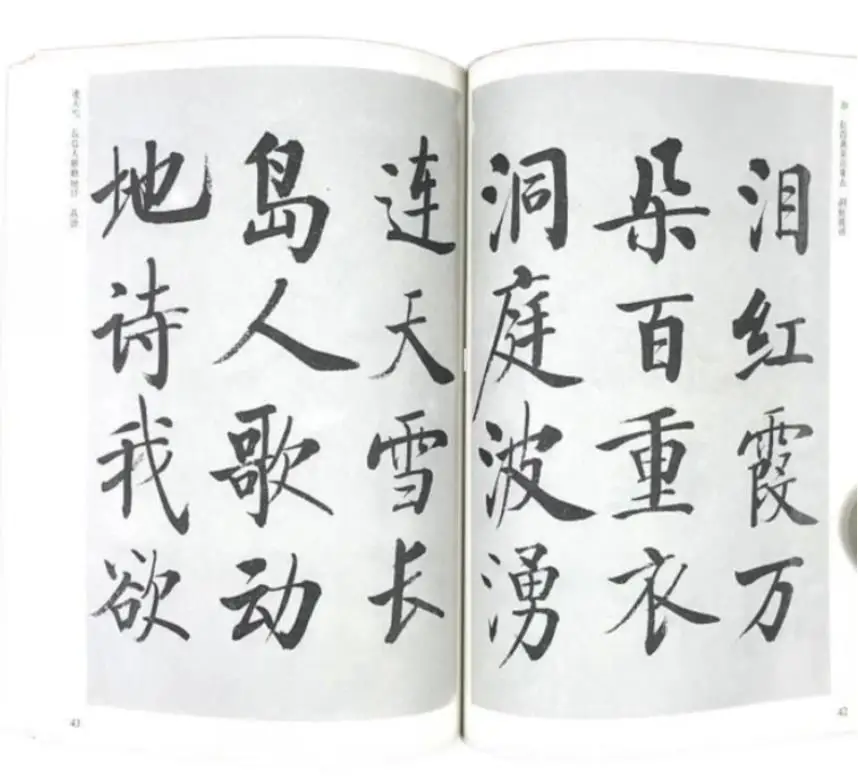 泪红霞万
朵百重衣
洞庭波湧
42
连天雪长
岛人歌动
地诗我欲
43